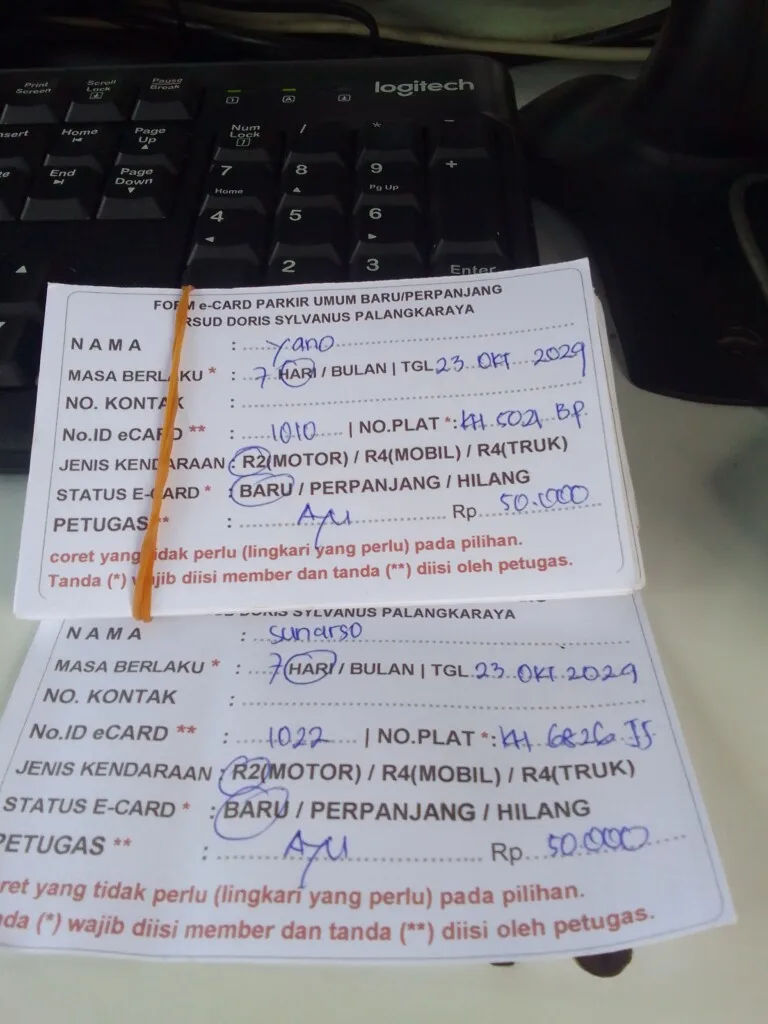 Print Screen
Scroll Lock
Pause Break
logitech
Home
Page Up
Num Lock
/
*
-
End
Page Down
7 Home
8
9 Pg Up
+
4
5
6
2
3
Enter
FORM e-CARD PARKIR UMUM BARU/PERPANJANG
RSUD DORIS SYLVANUS PALANGKARAYA
NAMA : Yano
MASA BERLAKU * : 7 HARI / BULAN | TGL 23 OKT 2029
NO. KONTAK :
No.ID eCARD ** : 1010 | NO.PLAT *: KH 5021 BP
JENIS KENDARAAN : R2(MOTOR) / R4(MOBIL) / R4(TRUK)
STATUS E-CARD * : BARU / PERPANJANG / HILANG
PETUGAS ** : AYU Rp 50.000
coret yang tidak perlu (lingkari yang perlu) pada pilihan.
Tanda (*) wajib diisi member dan tanda (**) diisi oleh petugas.
DORIS SYLVANUS PALANGKARAYA
NAMA : sunarso
MASA BERLAKU * : 7 HARI / BULAN | TGL 23 OKT 2029
NO. KONTAK :
No.ID eCARD ** : 1022 | NO.PLAT *: KH 6826 JS
JENIS KENDARAAN : R2(MOTOR) / R4(MOBIL) / R4(TRUK)
STATUS E-CARD * : BARU / PERPANJANG / HILANG
PETUGAS ** : AYU Rp 50.000
ret yang tidak perlu (lingkari yang perlu) pada pilihan.
nda (*) wajib diisi member dan tanda (**) diisi oleh petugas.